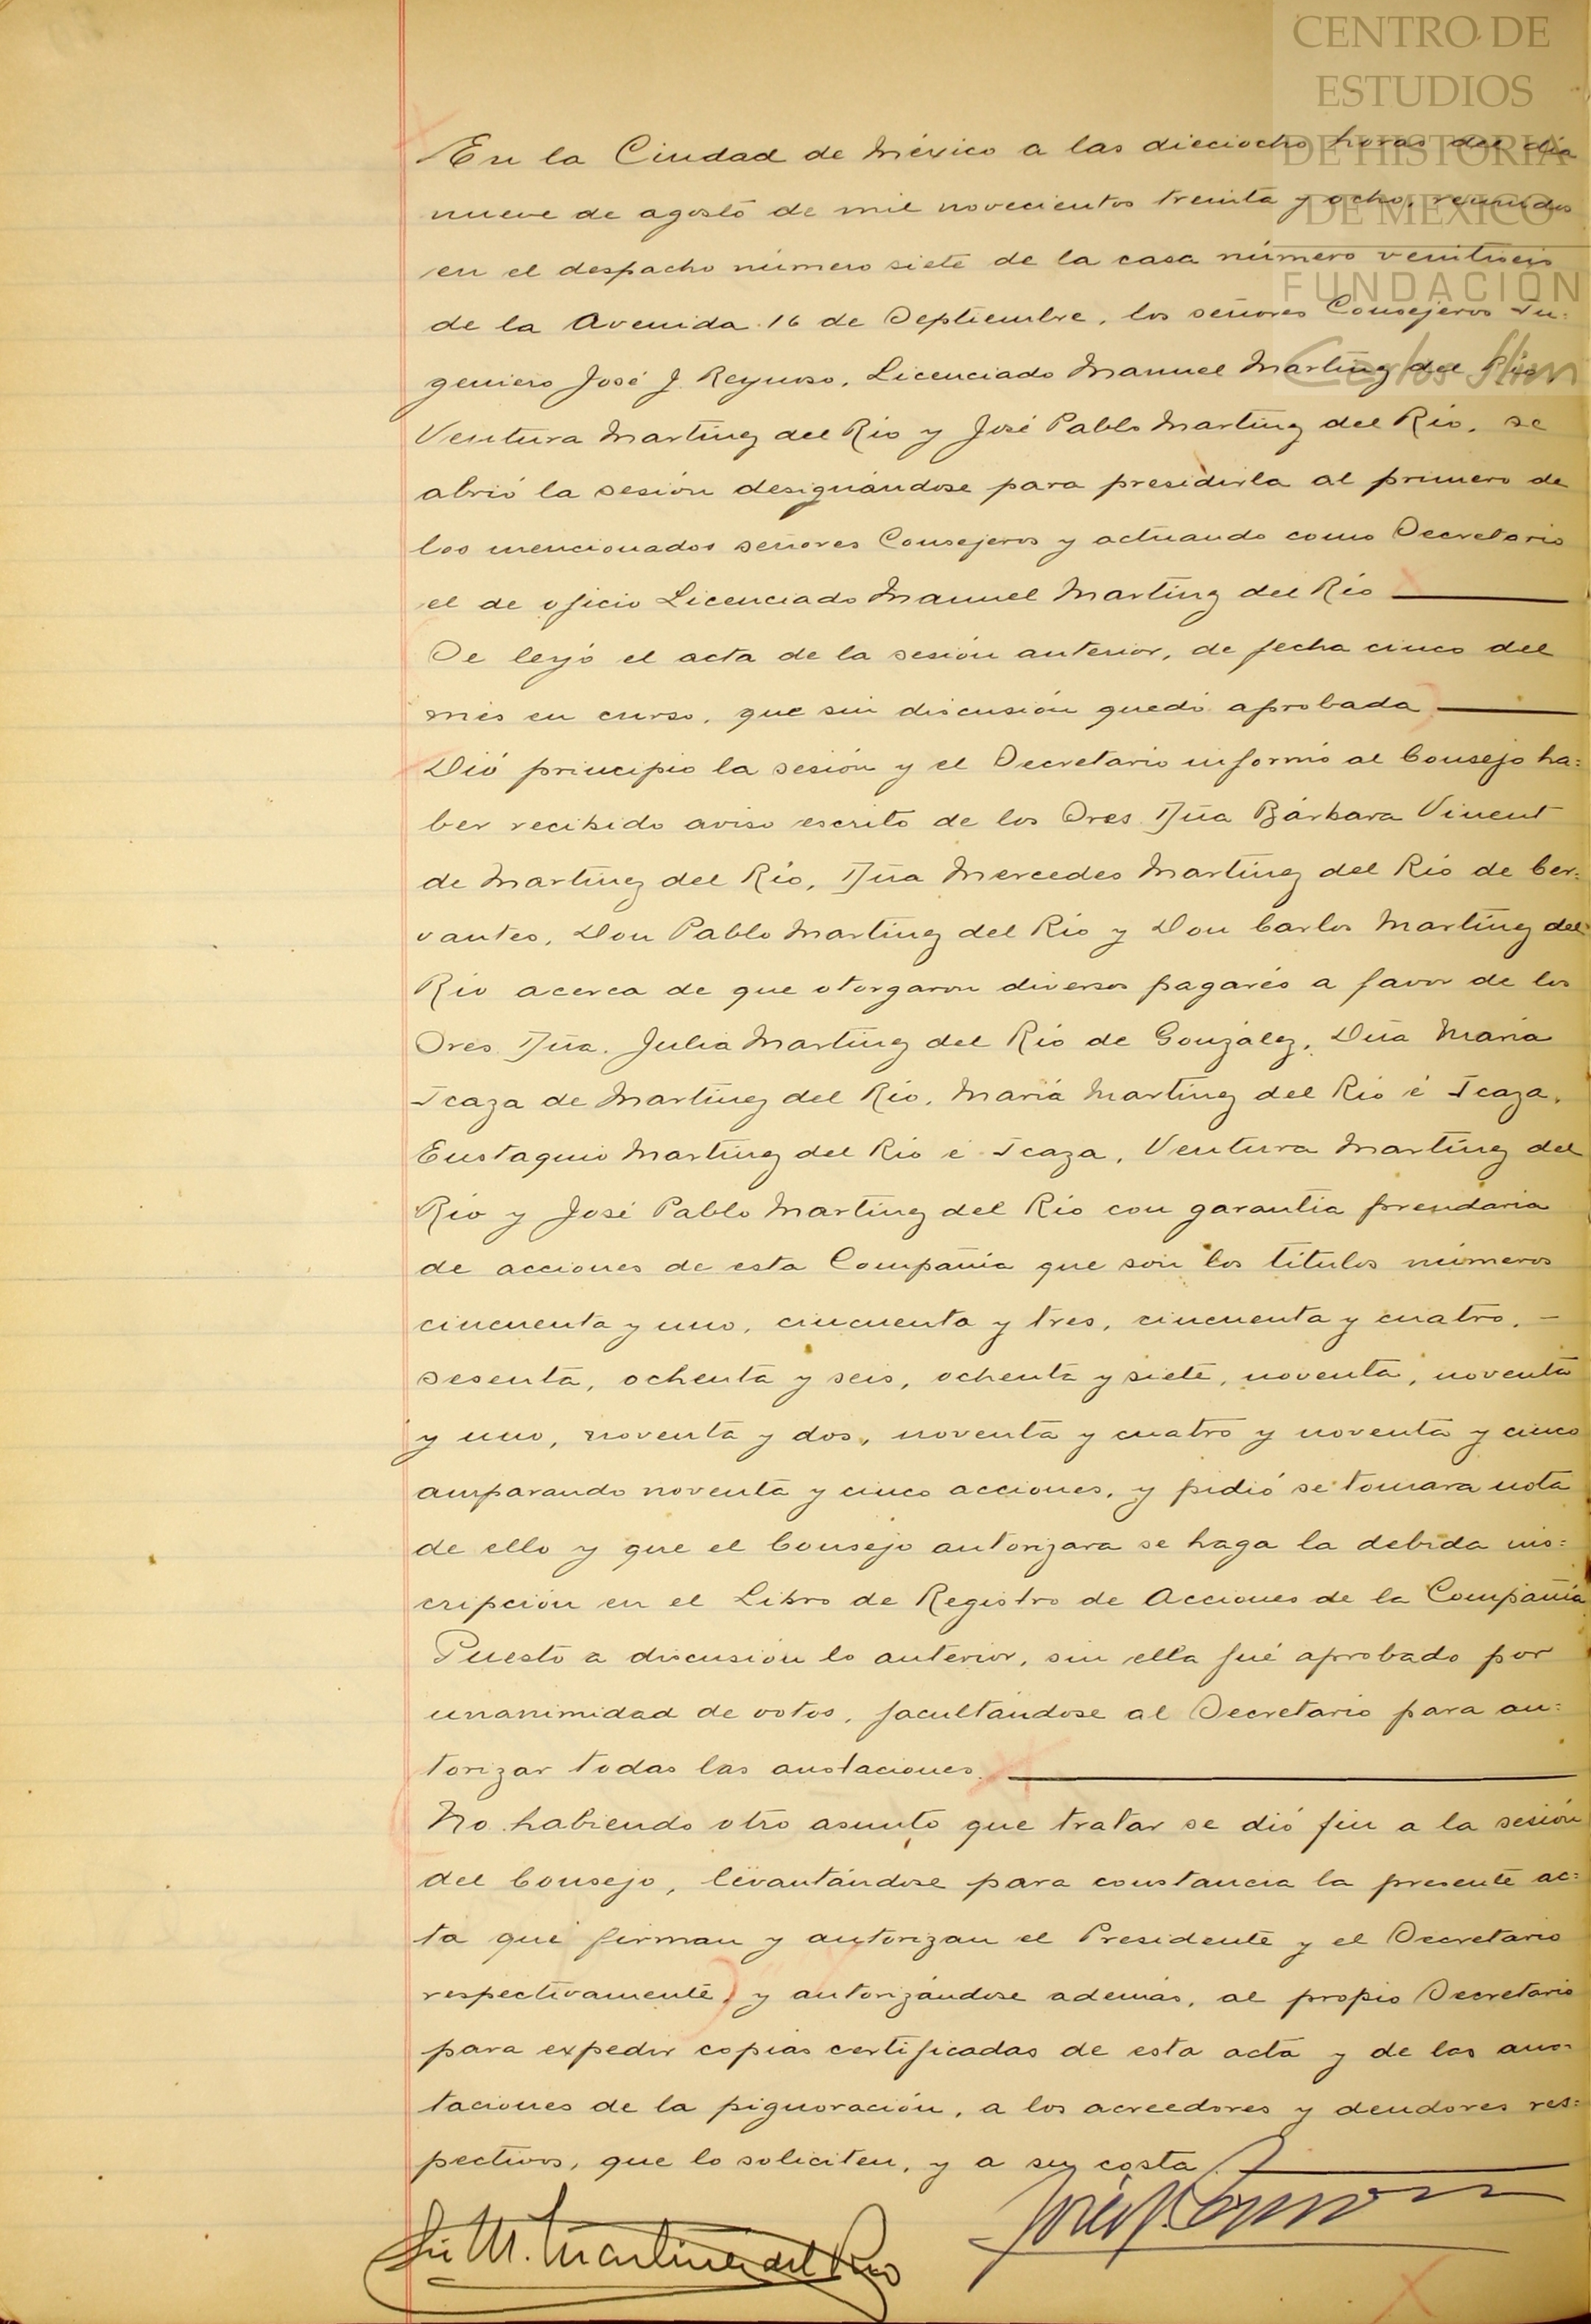 CENTRO DE
ESTUDIOS
DE HISTORIA
DE MEXICO
FUNDACION
Carlos Slim
En la Ciudad de México a las dieciocho horas del día
nueve de agosto de mil novecientos treinta y ocho, reunidos
en el despacho número siete de la casa número
de la Avenida 16 de Septiembre, los señores Consejeros In=
geniero José J. Reynoso, Licenciado Manuel Martínez del Río,
Ventura Martínez del Río y José Pablo Martínez del Río, se
abrió la sesión designándose para presidirla al primero de
los mencionados señores Consejeros y actuando como Secretario
el de oficio Licenciado Manuel Martínez del Río
Se leyó el acta de la sesión anterior, de fecha cinco del
mes en curso, que sin discusión quedó aprobada
Dió principio la sesión y el Secretario informó al Consejo ha=
ber recibido aviso escrito de los Sres. Dña Bárbara Vinent
de Martínez del Río, Dña Mercedes Martínez del Río de Cer=
vantes, Don Pablo Martínez del Río y Don Carlos Martínez del
Río acerca de que otorgaron diversos pagarés a favor de los
Sres. Dña. Julia Martínez del Río de González, Dña María
Icaza de Martínez del Río, María Martínez del Río é Icaza,
Eustaquio Martínez del Río é Icaza, Ventura Martínez del
Río y José Pablo Martínez del Río con garantía prendaria
de acciones de esta Compañía que son los títulos números
cincuenta y uno, cincuenta y tres, cincuenta y cuatro, -
sesenta, ochenta y seis, ochenta y siete, noventa, noventa
y uno, noventa y dos, noventa y cuatro y noventa y cinco
amparando noventa y cinco acciones, y pidió se tomara nota
de ello y que el Consejo autorizara se haga la debida ins=
cripción en el Libro de Registro de Acciones de la Compañía
Puesto a discusión lo anterior, sin ella fué aprobado por
unanimidad de votos, facultándose al Secretario para au=
torizar todas las anotaciones.
No habiendo otro asunto que tratar se dió fin a la sesión
del Consejo, levantándose para constancia la presente ac=
ta que firman y autorizan el Presidente y el Secretario
respectivamente, y autorizándose además, al propio Secretario
para expedir copias certificadas de esta acta y de las ano=
taciones de la pignoración, a los acreedores y deudores res=
pectivos, que lo soliciten, y a su costa.
Lic M. Martínez del Río